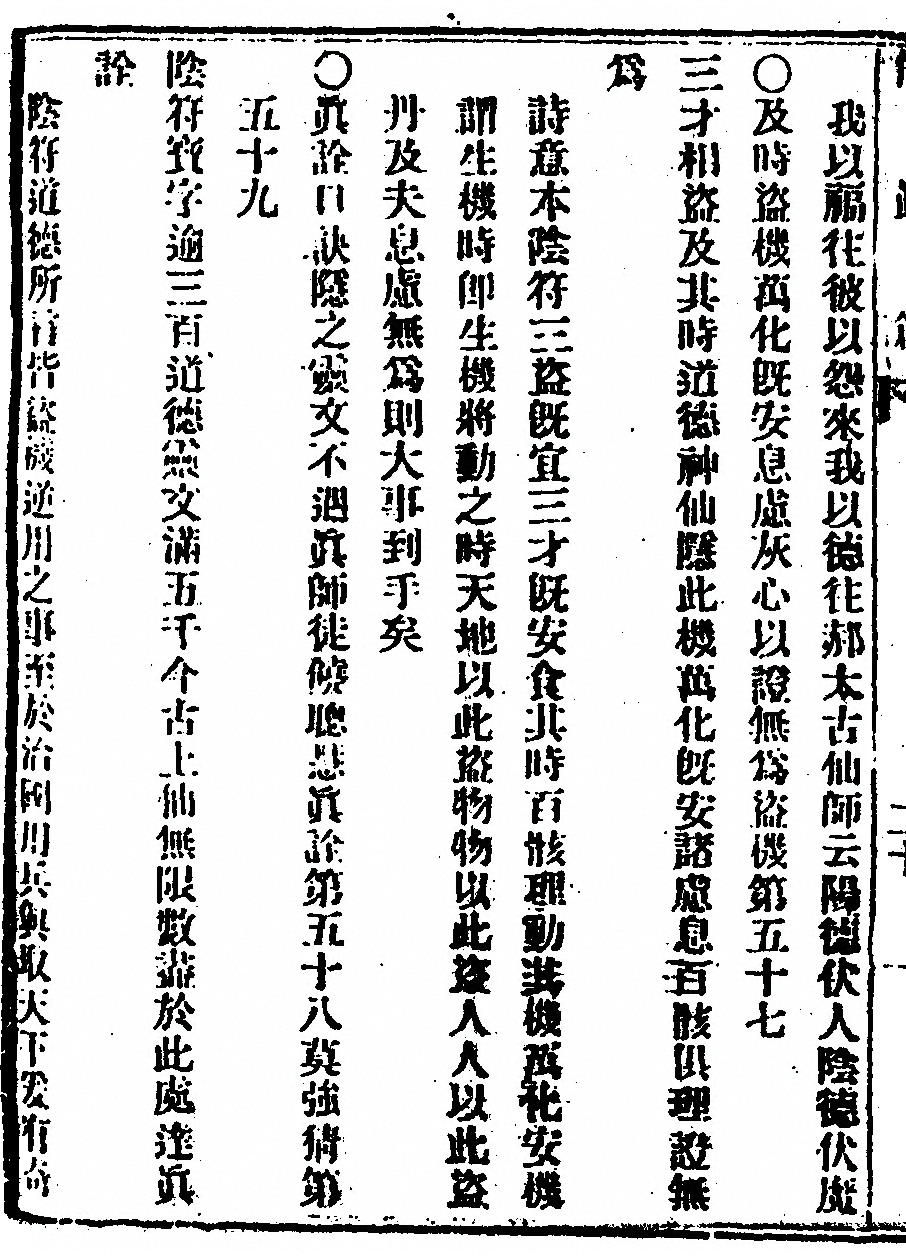 我以福往彼以怨來我以德往郝太古仙師云陽德伏人陰德伏鬼
〇及時盜機萬化旣安息慮灰心以證無爲盜機第五十七
三才相盜及其時道德神仙隱此機萬化旣安諸慮息百骸俱理證無
爲
詩意本陰符三盜旣宜三才旣安食其時百骸理動其機萬化安機
謂生機時卽生機將動之時天地以此盜物物以此盜人人以此盜
丹及夫息慮無爲則大事到手矣
〇眞詮口訣隱之靈文不遇眞師徒饒聰慧眞詮第五十八莫強猜第
五十九
陰符寶字逾三百道德靈文滿五千今古上仙無限數盡於此處達眞
詮
陰符道德所言皆盜機逆用之事至於治國用兵與取天下爰有奇